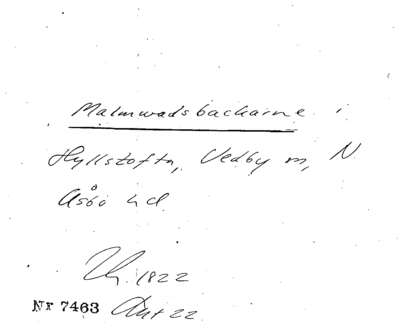 Malmwadsbackarne i
Hyllstofta, Vedby m, N.
Åsbo hd.
1822
Nr 7463 Akt 22